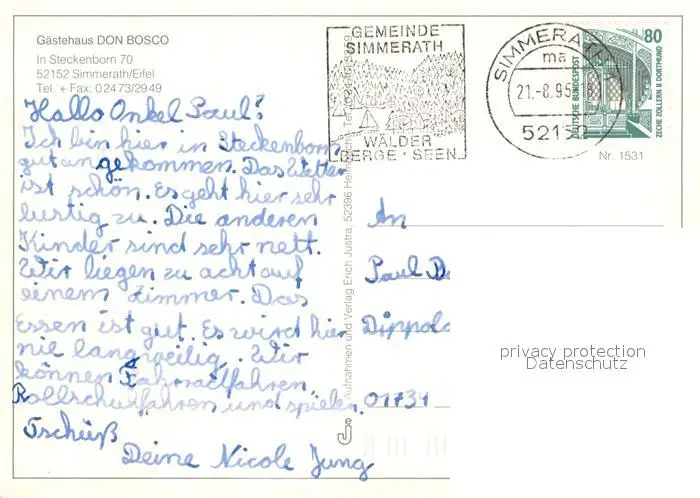 Gästehaus DON BOSCO
In Steckenborn 70
52152 Simmerath/Eifel
Tel. + Fax: 02473/2949
Hallo Onkel Paul!
Ich bin hier in Steckenborn
gut angekommen. Das Wetter
ist schön. Es geht hier sehr
lustig zu. Die anderen
Kinder sind sehr nett.
Wir liegen zu acht auf
einem Zimmer. Das
Essen ist gut. Es wird hier
nie langweilig. Wir
können Fahrradfahren
Rollschuhfahren und spielen.
Tschüß
Deine Nicole Jung
GEMEINDE
SIMMERATH
WÄLDER
BERGE · SEEN
SIMMERATH 1
ma
21.-8.95
52152
80
DEUTSCHE BUNDESPOST
ZECHE ZOLLERN II DORTMUND
Nr. 1531
Aufnahmen und Verlag Erich Justra, 52396
An
Paul
Dippol
01734
privacy protection
Datenschutz